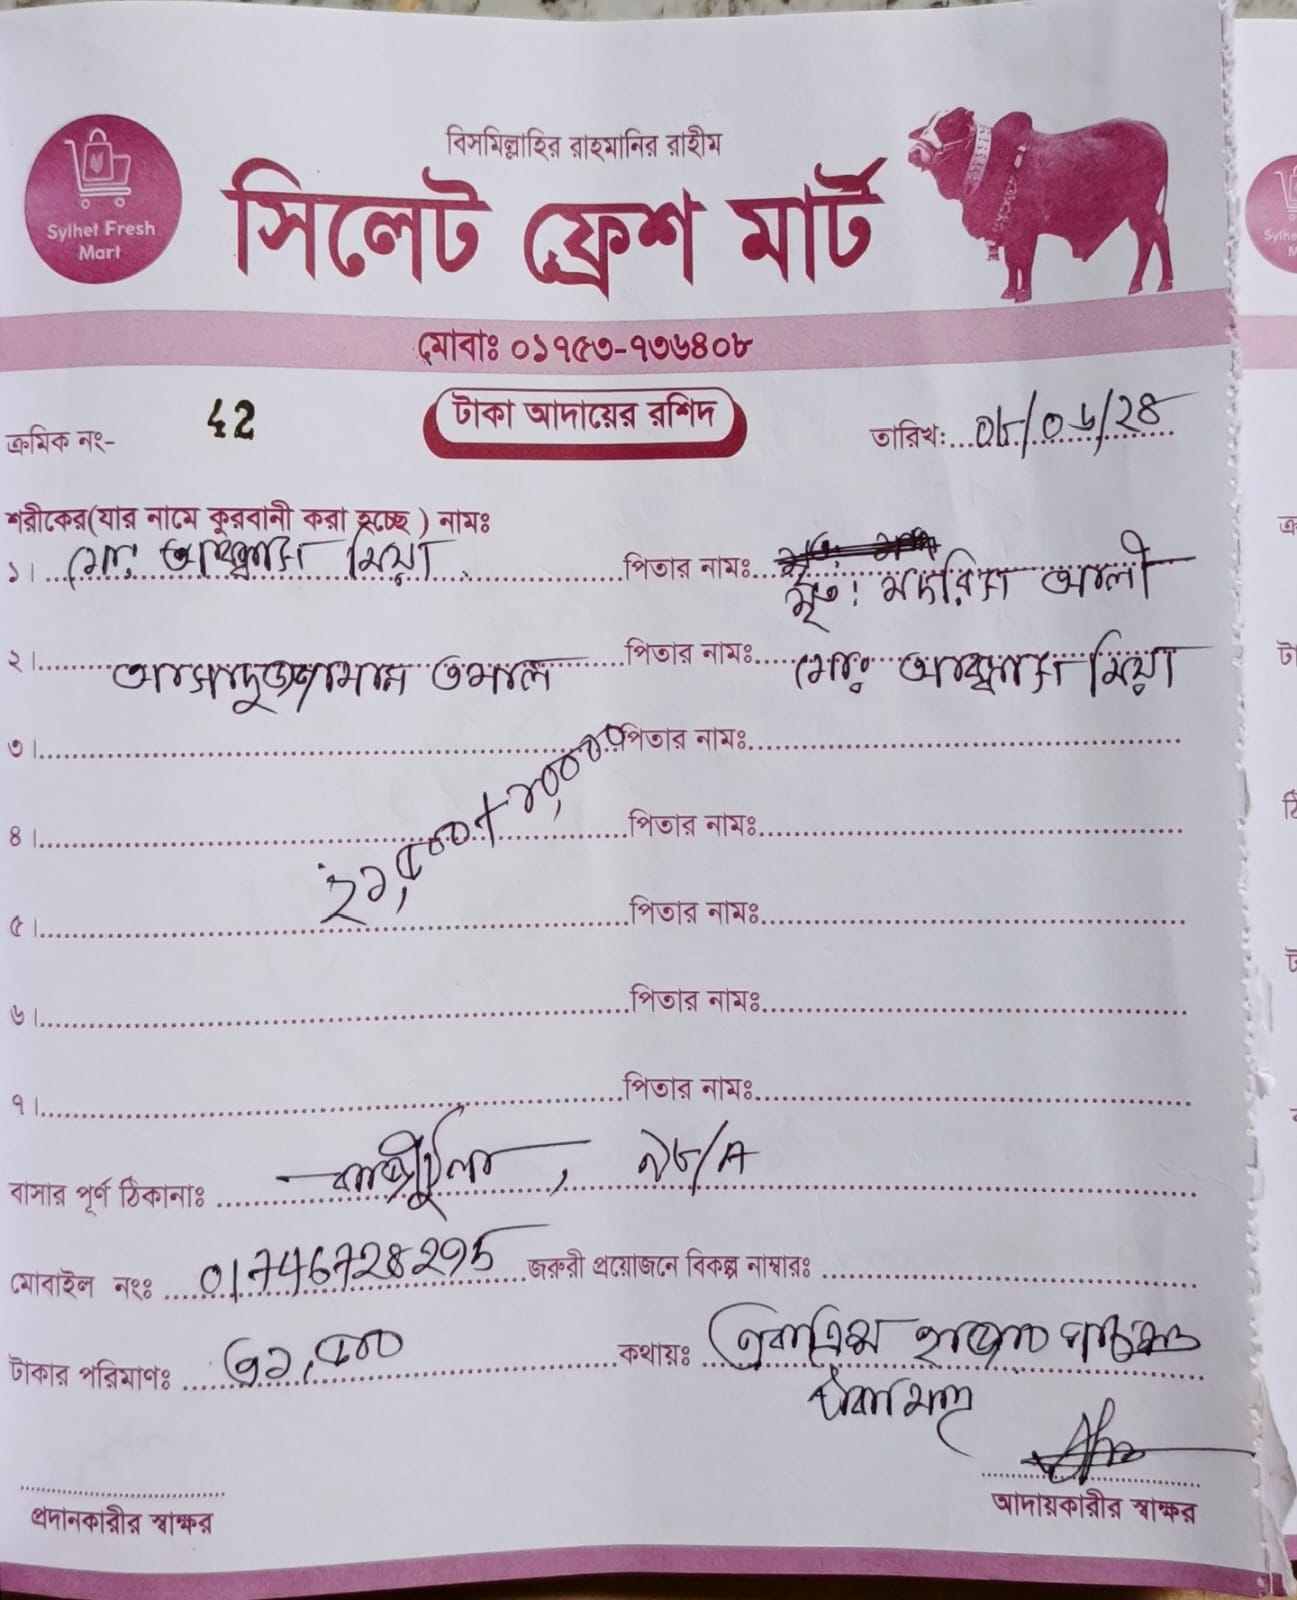 বিসমিল্লাহির রাহমানির রাহীম
Sylhet Fresh Mart
সিলেট ফ্রেশ মার্ট
মোবাঃ ০১৭৫৩-৭৩৬৪০৮
ক্রমিক নং- 42
টাকা আদায়ের রশিদ
তারিখ: ০৮/০৬/২৪
শরীকের(যার নামে কুরবানী করা হচ্ছে ) নামঃ
১। মো: আব্বাস মিয়া পিতার নামঃ মৃত: মদরিস আলী
২। আসাদুজ্জামান তমাল পিতার নামঃ মো: আব্বাস মিয়া
৩। পিতার নামঃ
২১,৫০০+১০,০০০
৪। পিতার নামঃ
৫। পিতার নামঃ
৬। পিতার নামঃ
৭। পিতার নামঃ
বাসার পূর্ণ ঠিকানাঃ কাজীটুলা, ৯৮/A
মোবাইল নংঃ 01746728295 জরুরী প্রয়োজনে বিকল্প নাম্বারঃ
টাকার পরিমাণঃ ৩১,৫০০ কথায়ঃ একত্রিশ হাজার পাঁচশত
টাকা মাত্র
প্রদানকারীর স্বাক্ষর
আদায়কারীর স্বাক্ষর